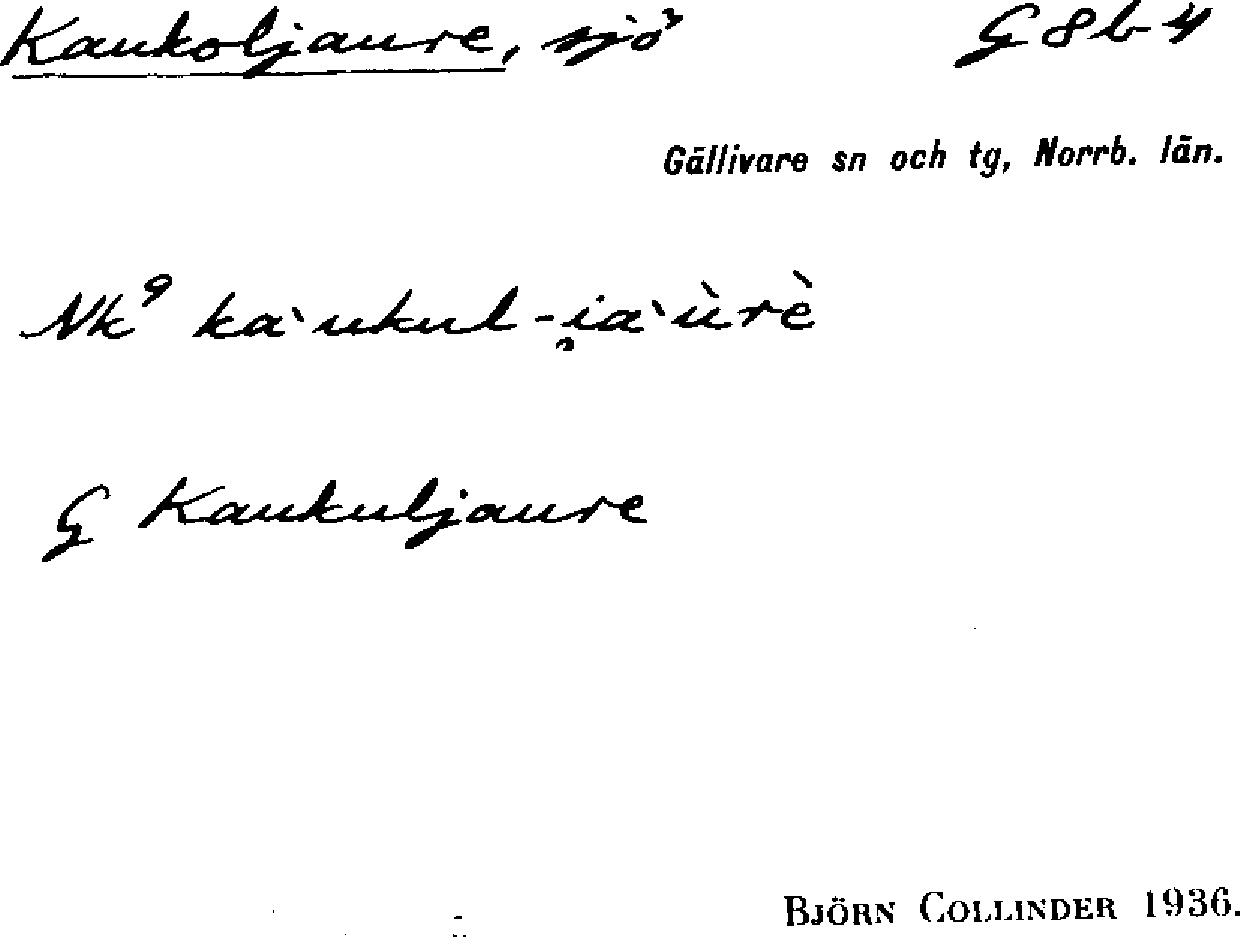 Kaukoljaure, sjö G 8 b 4
Gällivare sn och tg, Norrb. län.
Nk⁹ kàukul-i̯a`ùrè
G Kaukuljaure
BJÖRN COLLINDER 1936.